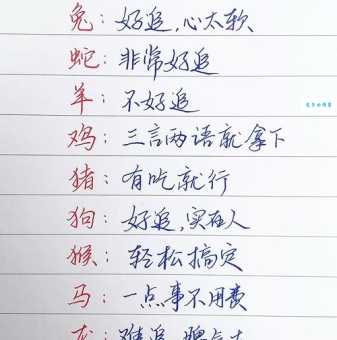 兔：好追，心太软
蛇：非常好追
羊：不好追
鸡：三言两语就拿下
猪：有吃就行
狗：好追，实在人
猴：轻松搞定
马：一点事不用费
龙：难追，脾气大